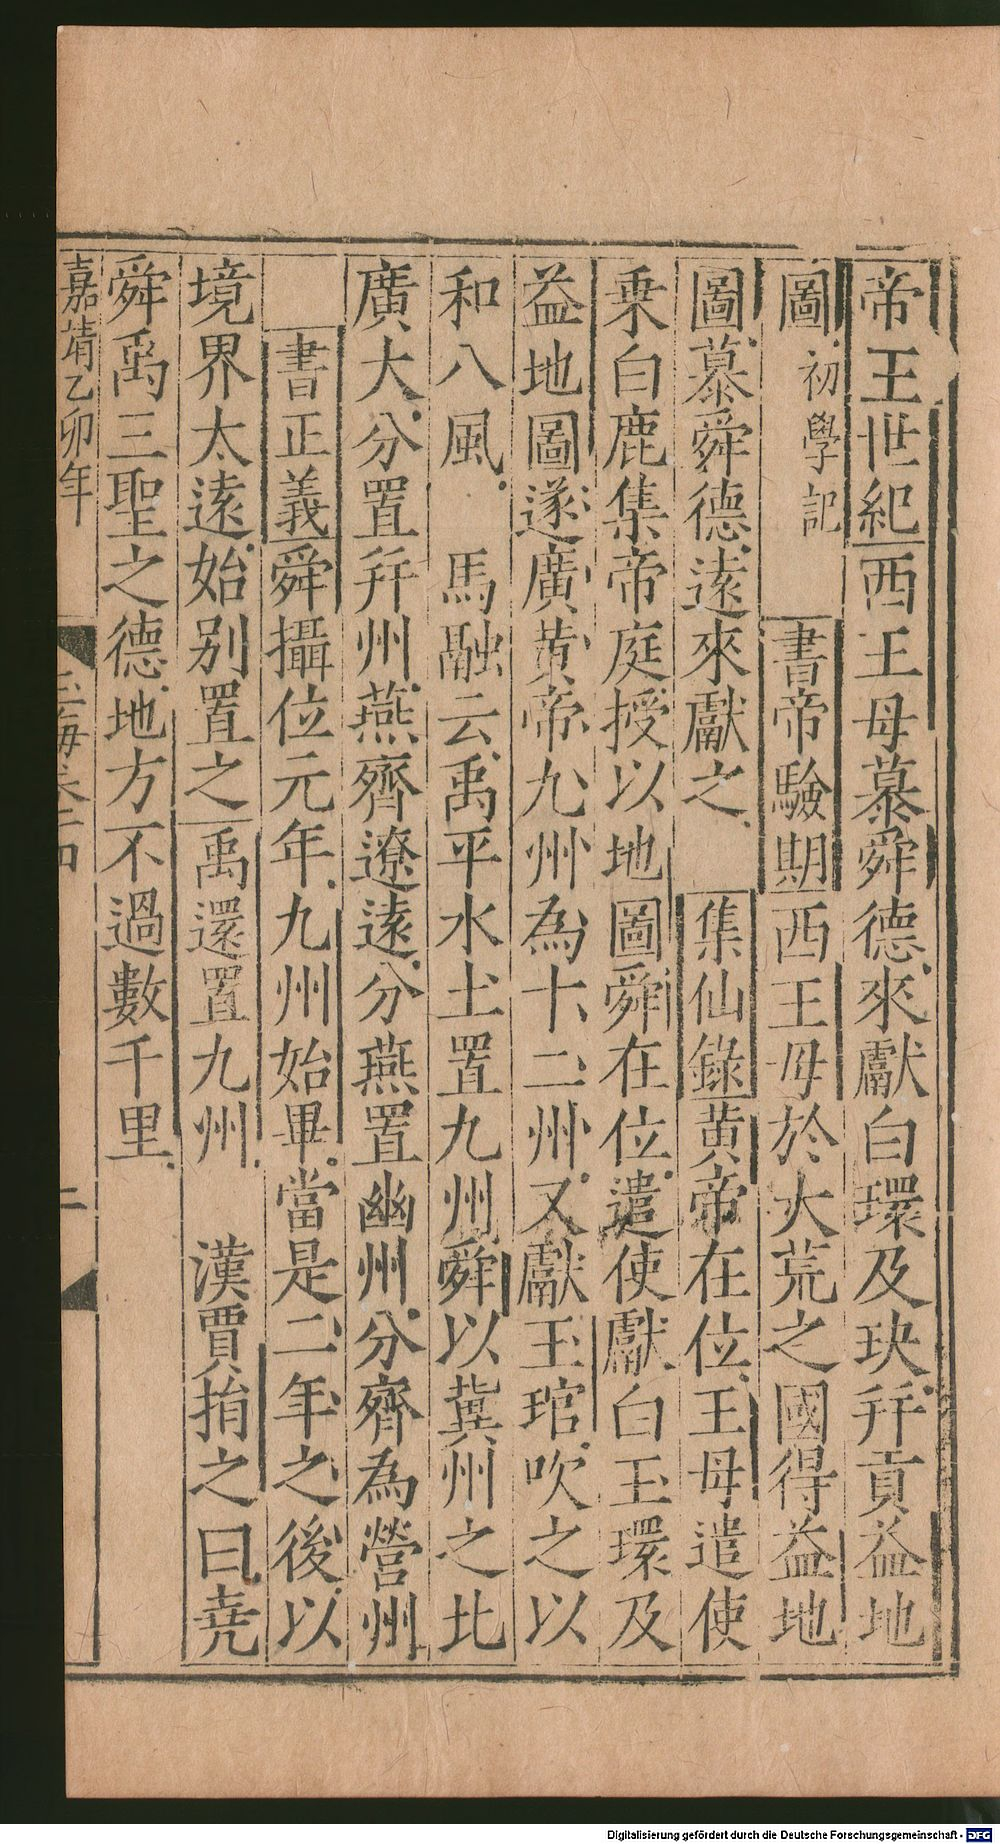 帝王世紀西王母慕舜德來獻白環及玦幷貢益地
圖初學記　書帝驗期西王母於大荒之國得益地
圖慕舜德遠來獻之　集仙錄黃帝在位王母遣使
乗白鹿集帝庭授以地圖舜在位遣使獻白玉環及
益地圖遂廣黃帝九州為十二州又獻玉琯吹之以
和八風　馬融云禹平水土置九州舜以冀州之北
廣大分置幷州燕齊遼遠分燕置幽州分齊為營州
書正義舜攝位元年九州始畢當是二年之後以
境界太遠始別置之禹還置九州　漢賈捐之曰堯
舜禹三聖之德地方不過數千里
嘉靖乙卯年　玉海卷十四　二
Digitalisierung gefördert durch die Deutsche Forschungsgemeinschaft - DFG